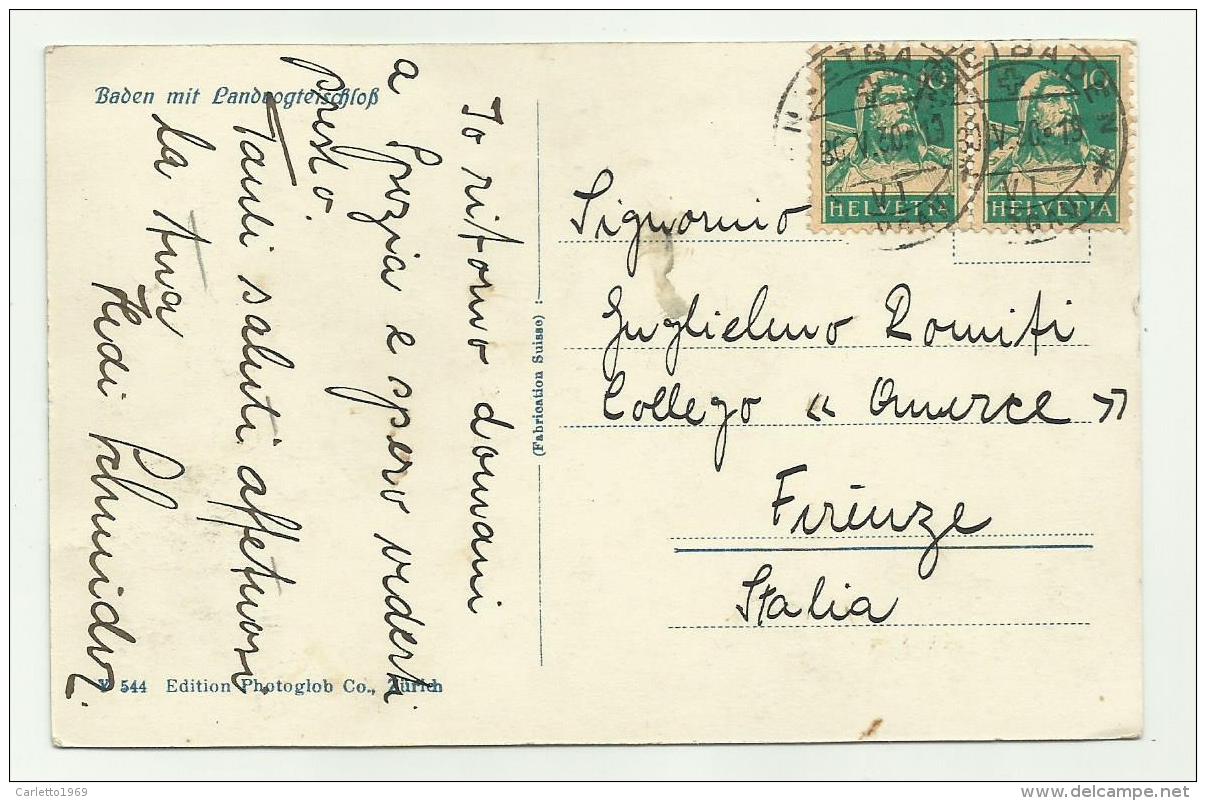 Baden mit Landvogteischloß
Io ritorno domani
a e spero vederti
presto.
Tanti saluti affettuosi
la tua
Hedi
(Fabrication Suisse)
544 Edition Photoglob Co., Zürich
10
10
HELVETIA
HELVETIA
30.V.30
V.30
VI
VI
Signorino
Guglielmo Romiti
Collego «
Firenze
Italia
Carletto1969
www.delcampe.net